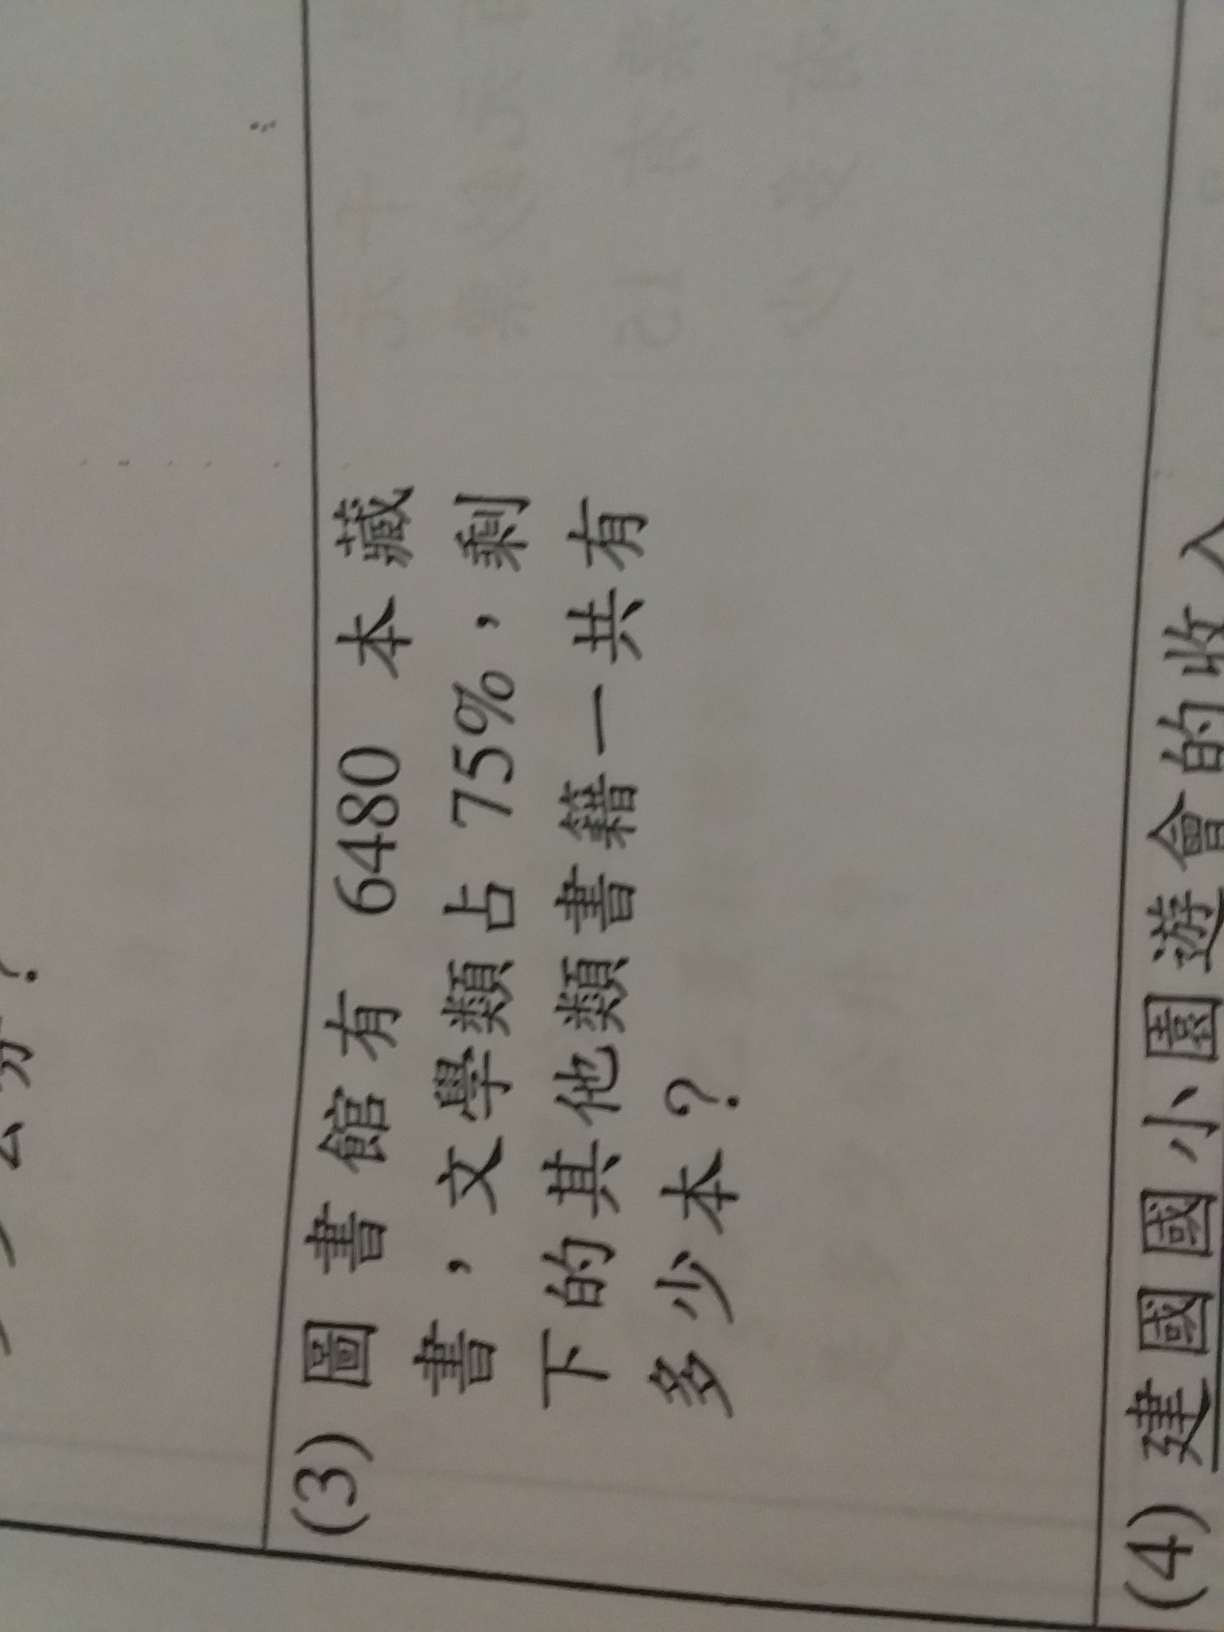 (3) 圖書館有 6480 本藏
書，文學類占 75%，剩
下的其他類書籍一共有
多少本？
(4) 建國國小園遊會的收入